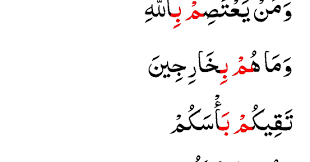 وَمَنْ يَعْتَصِمْ بِاللَّهِ
وَمَا هُمْ بِخَارِجِينَ
تَقِيكُمْ بَأْسَكُمْ